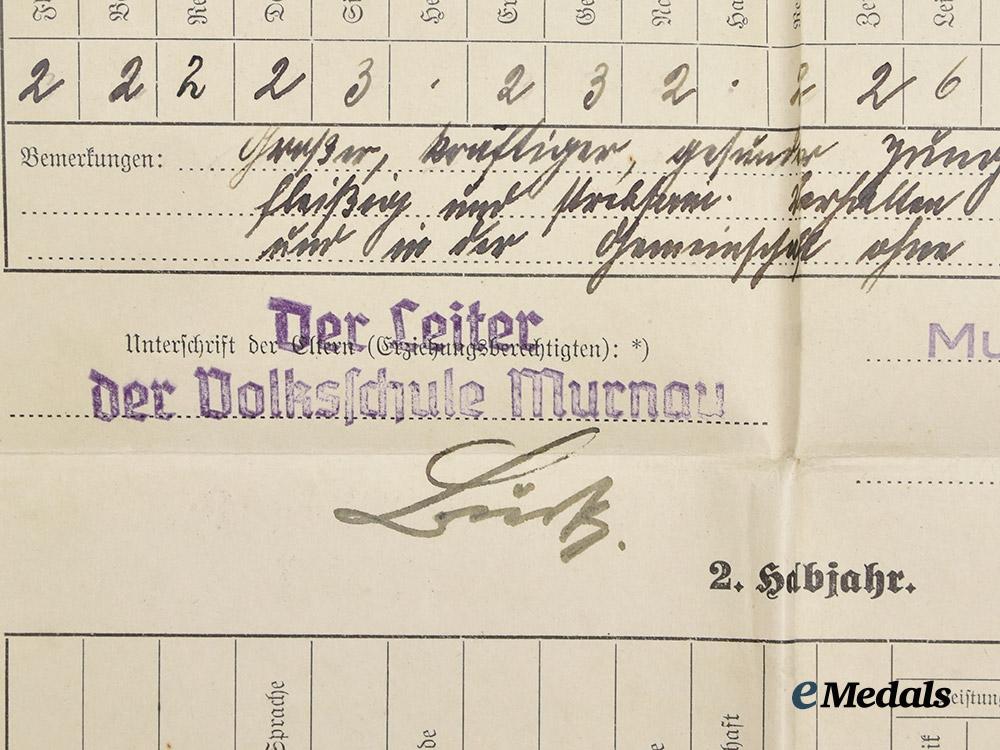 2 2 2 2 3 · 2 3 2 · 2 2 6
Bemerkungen: Großer, kräftiger, gesunder
fleißig und strebsam. Verhalten
und in der Gemeinschaft ohne
Der Leiter
Unterschrift der Eltern (Erziehungsberechtigten): *)
der Volksschule Murnau
Mu
2. Halbjahr.
Sprache
eMedals